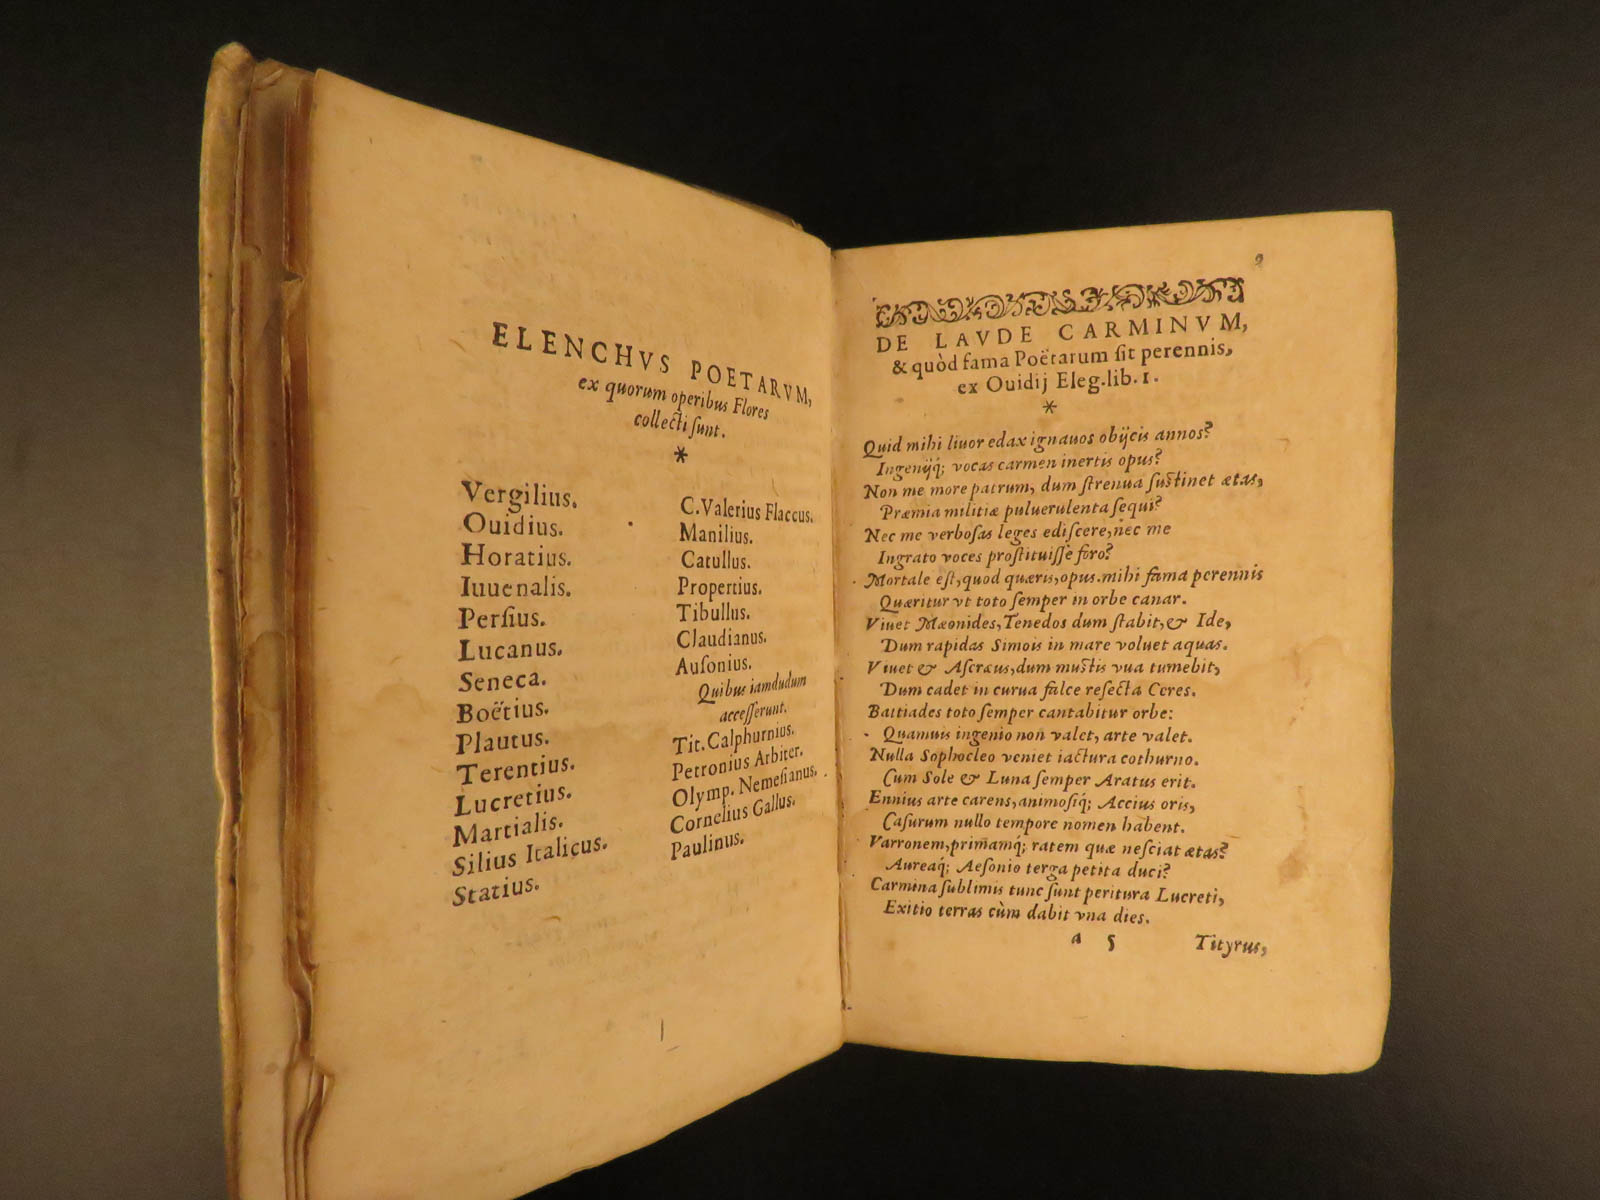 ELENCHVS POETARVM,
ex quorum operibus Flores
collecti ſunt.
*
Vergilius.
Ouidius.
Horatius.
Iuuenalis.
Perſius.
Lucanus.
Seneca.
Boëtius.
Plautus.
Terentius.
Lucretius.
Martialis.
Silius Italicus.
Statius.
C. Valerius Flaccus.
Manilius.
Catullus.
Propertius.
Tibullus.
Claudianus.
Auſonius.
Quibus iamdudum
acceſſerunt.
Tit. Calphurnius.
Petronius Arbiter.
Olymp. Nemeſianus.
Cornelius Gallus.
Paulinus.
9
DE LAVDE CARMINVM,
& quòd fama Poëtarum ſit perennis,
ex Ouidij Eleg. lib. 1.
*
Quid mihi liuor edax ignauos obijcis annos?
Ingenijq́; vocas carmen inertis opus?
Non me more patrum, dum ſtrenua ſuſtinet ætas,
Præmia militiæ puluerulenta ſequi?
Nec me verboſas leges ediſcere, nec me
Ingrato voces proſtituiſſe foro?
Mortale eſt, quod quæris, opus. mihi fama perennis
Quæritur vt toto ſemper in orbe canar.
Viuet Mæonides, Tenedos dum ſtabit, & Ide,
Dum rapidas Simois in mare voluet aquas.
Viuet & Aſcræus, dum muſtis vua tumebit,
Dum cadet in curua falce reſecta Ceres.
Battiades toto ſemper cantabitur orbe:
Quamuis ingenio non valet, arte valet.
Nulla Sophocleo veniet iactura cothurno.
Cum Sole & Luna ſemper Aratus erit.
Ennius arte carens, animoſiq́; Accius oris,
Caſurum nullo tempore nomen habent.
Varronem, primamq́; ratem quæ neſciat ætas?
Aureaq́; Aeſonio terga petita duci?
Carmina ſublimis tunc ſunt peritura Lucreti,
Exitio terras cùm dabit vna dies.
a 5 Tityrus,